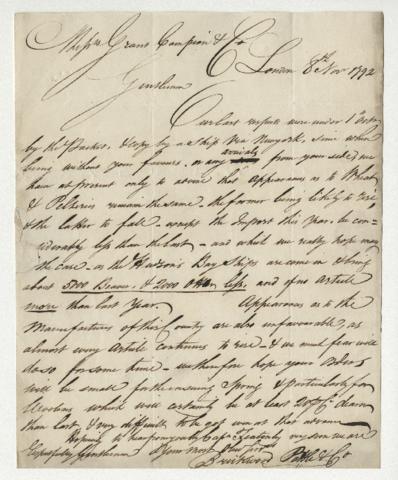 Mess.rs Grant Campion & Co London 8th Nov 1792
Gentlemen
Our last respects were under 1st Octr
by the Packet, & copy by a Ship via Newyork, since when
being without your favours, or any arrivals from your side, we
have at present only to advise that Appearances as to Wheat
& Peltries remain the same, the former being likely to rise
& the latter to fall — except the Import this Year, be con-
siderably less than the last — and which we really hope may
be the case — as the Hudson's Bay Ships are come in & bring
about 5000 Beaver, & 2000 Otter less, and of no Article
more than last Year. Appearances as to the
Manufactures of this Country are also unfavourable, as
almost every Article continues to rise — & we much fear will
do so for some time — we therefore hope your Orders
will be small for the ensuing Spring & particularly for
Woollens which will certainly be at least 20 P Ct dearer
than last, & very difficult to be got even at that advance
Hoping to hear from you by Capt Featonby we are
respectfully Gentlemen Your most
Brickwood Pattle & Co